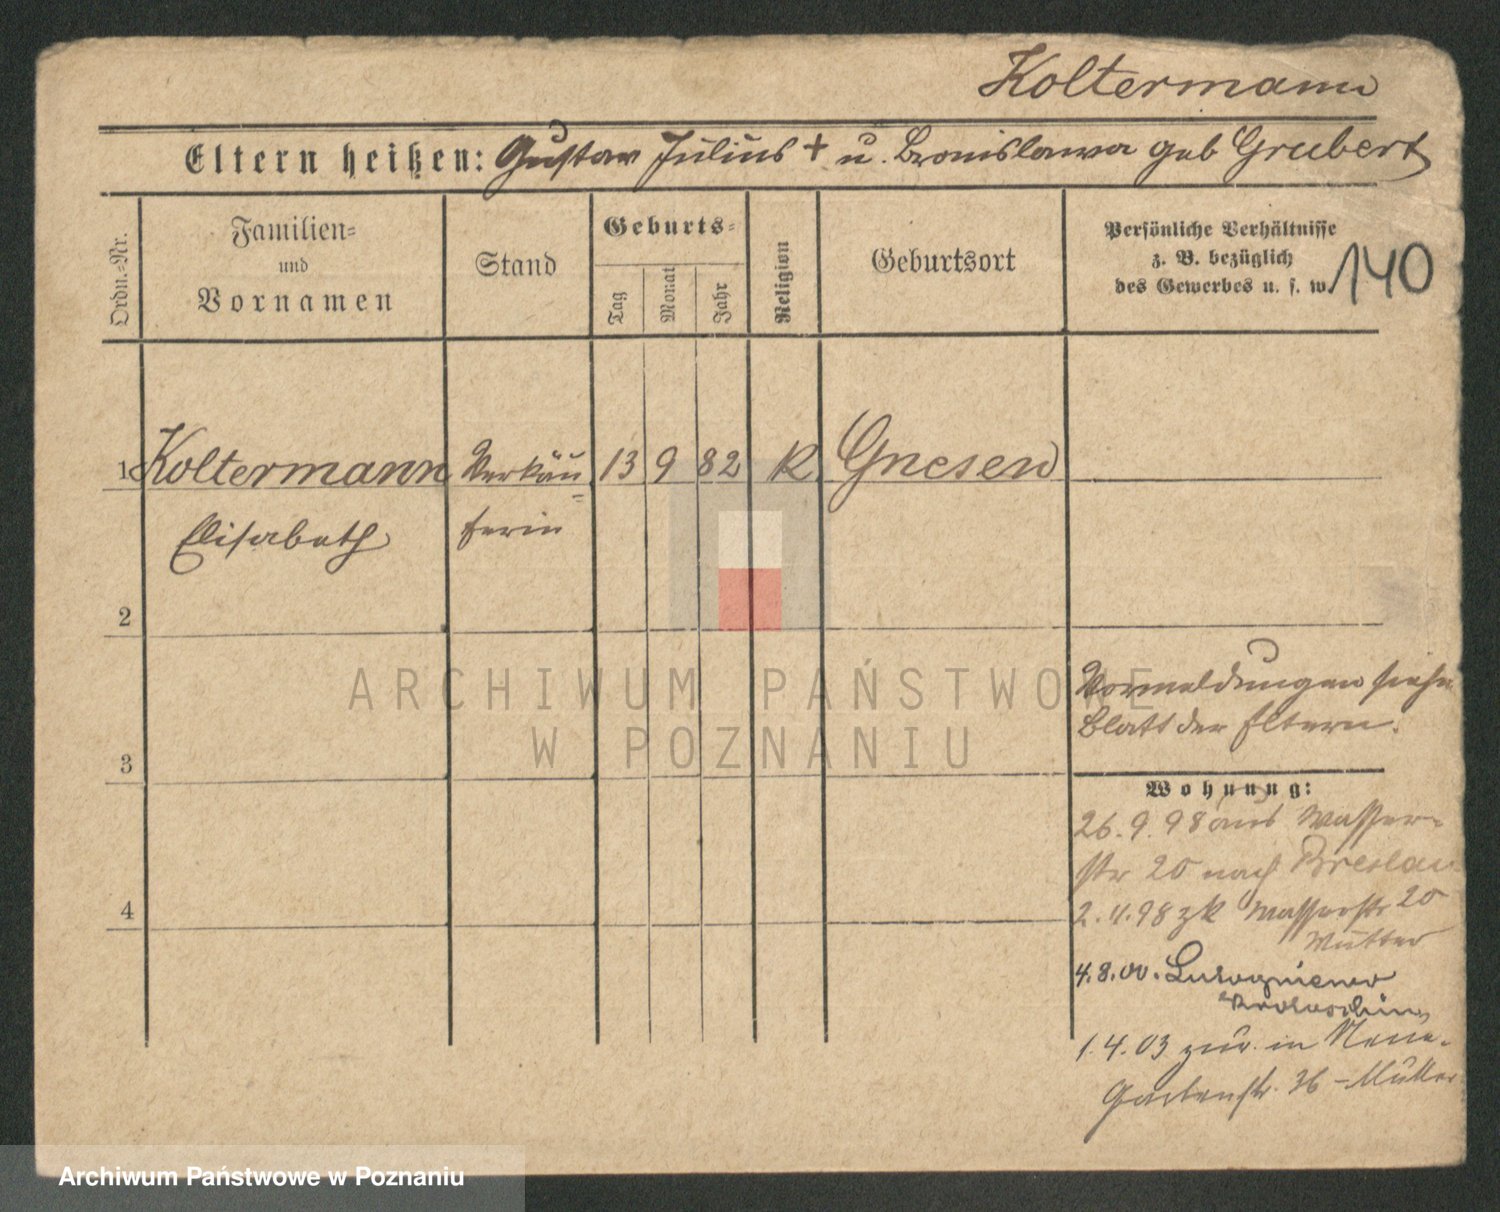 Koltermann
Eltern heißen: Gustav Julius + u. Bronislawa geb Grubert
Ordn.-Nr.
Familien-
und
Vornamen
Stand
Geburts-
Tag
Monat
Jahr
Religion
Geburtsort
Persönliche Verhältnisse
z. B. bezüglich
des Gewerbes u. s. w.
140
1 Koltermann Verkäu= 13 9 82 K Gnesen
Elisabeth ferin
2
Vormeldungen siehe
Blatt der Eltern.
3
Wohnung:
26.9.98 aus Wasser-
str 20 nach Breslau
4
2.11.98 zk Wasserstr 20
Mutter
4.8.00.
Krotoschin,
1.4.03 zur. in Neue-
Gartenstr. 36 – Mutter
ARCHIWUM PAŃSTWOWE
W POZNANIU
Archiwum Państwowe w Poznaniu